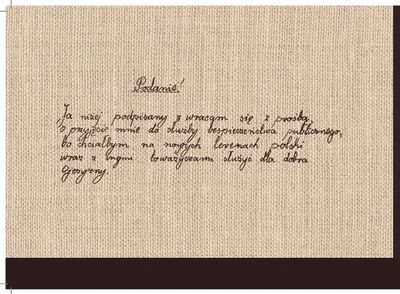 Podanie!
Ja niżej podpisany zwracam się z prośbą
o przyjęcie mnie do służby bespieczeństwa publicznego,
bo chciałbym na nowych terenach polski
wraz z innymi towarzyszami służyć dla dobra
Ojczyzny.